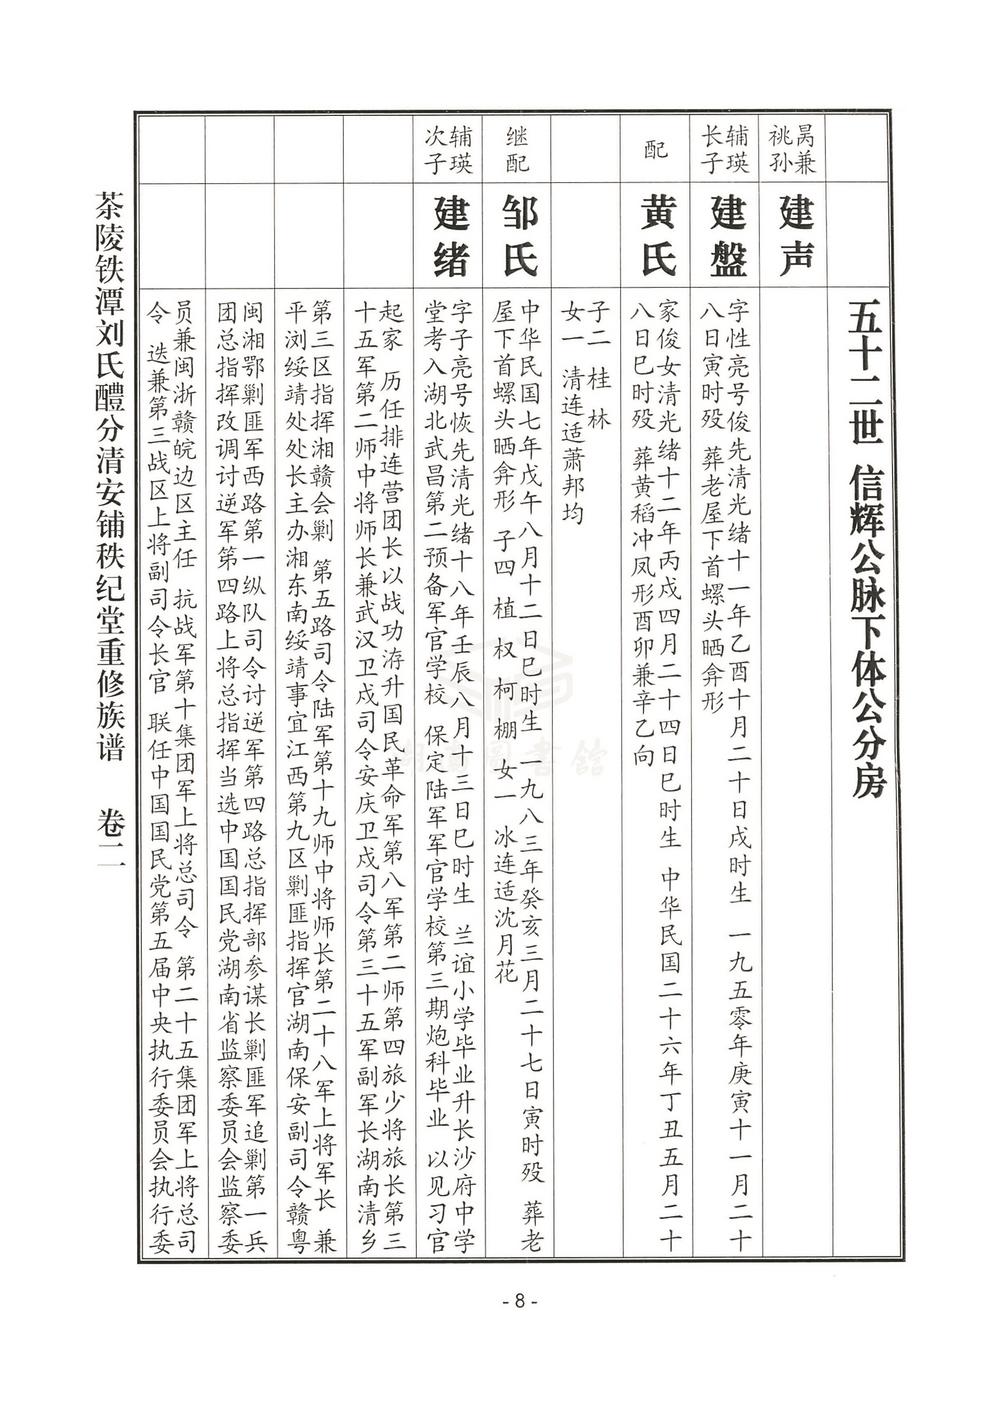 五十二世 信辉公脉下体公分房
昺兼
祧孙
建声
辅瑛
长子
建盤
字性亮号俊先清光绪十一年乙酉十月二十日戌时生 一九五零年庚寅十一月二十
八日寅时殁 葬老屋下首螺头晒弇形
配
黄氏
家俊女清光绪十二年丙戌四月二十四日巳时生 中华民国二十六年丁丑五月二十
八日巳时殁 葬黄稻冲凤形酉卯兼辛乙向
子二 桂 林
女一 清连适萧邦均
继
配
邹氏
中华民国七年戊午八月十二日巳时生 一九八三年癸亥三月二十七日寅时殁 葬老
屋下首螺头晒弇形 子四 植 权 柯 棚 女一 冰连适沈月花
辅瑛
次子
建绪
字子亮号恢先清光绪十八年壬辰八月十三日巳时生 兰谊小学毕业升长沙府中学
堂考入湖北武昌第二预备军官学校 保定陆军军官学校第三期炮科毕业 以见习官
起家 历任排连营团长以战功洊升国民革命军第八军第二师第四旅少将旅长第三
十五军第二师中将师长兼武汉卫戍司令安庆卫戍司令第三十五军副军长湖南清乡
第三区指挥湘赣会剿 第五路司令陆军第十九师中将师长第二十八军上将军长 兼
平浏绥靖处处长主办湘东南绥靖事宜江西第九区剿匪指挥官湖南保安副司令赣粤
闽湘鄂剿匪军西路第一纵队司令讨逆军第四路总指挥部参谋长剿匪军追剿第一兵
团总指挥改调讨逆军第四路上将总指挥当选中国国民党湖南省监察委员会监察委
员兼闽浙赣皖边区主任 抗战军第十集团军上将总司令 第二十五集团军上将总司
令 迭兼第三战区上将副司令长官 联任中国国民党第五届中央执行委员会执行委
茶陵铁潭刘氏醴分清安铺秩纪堂重修族谱 卷二
- 8 -